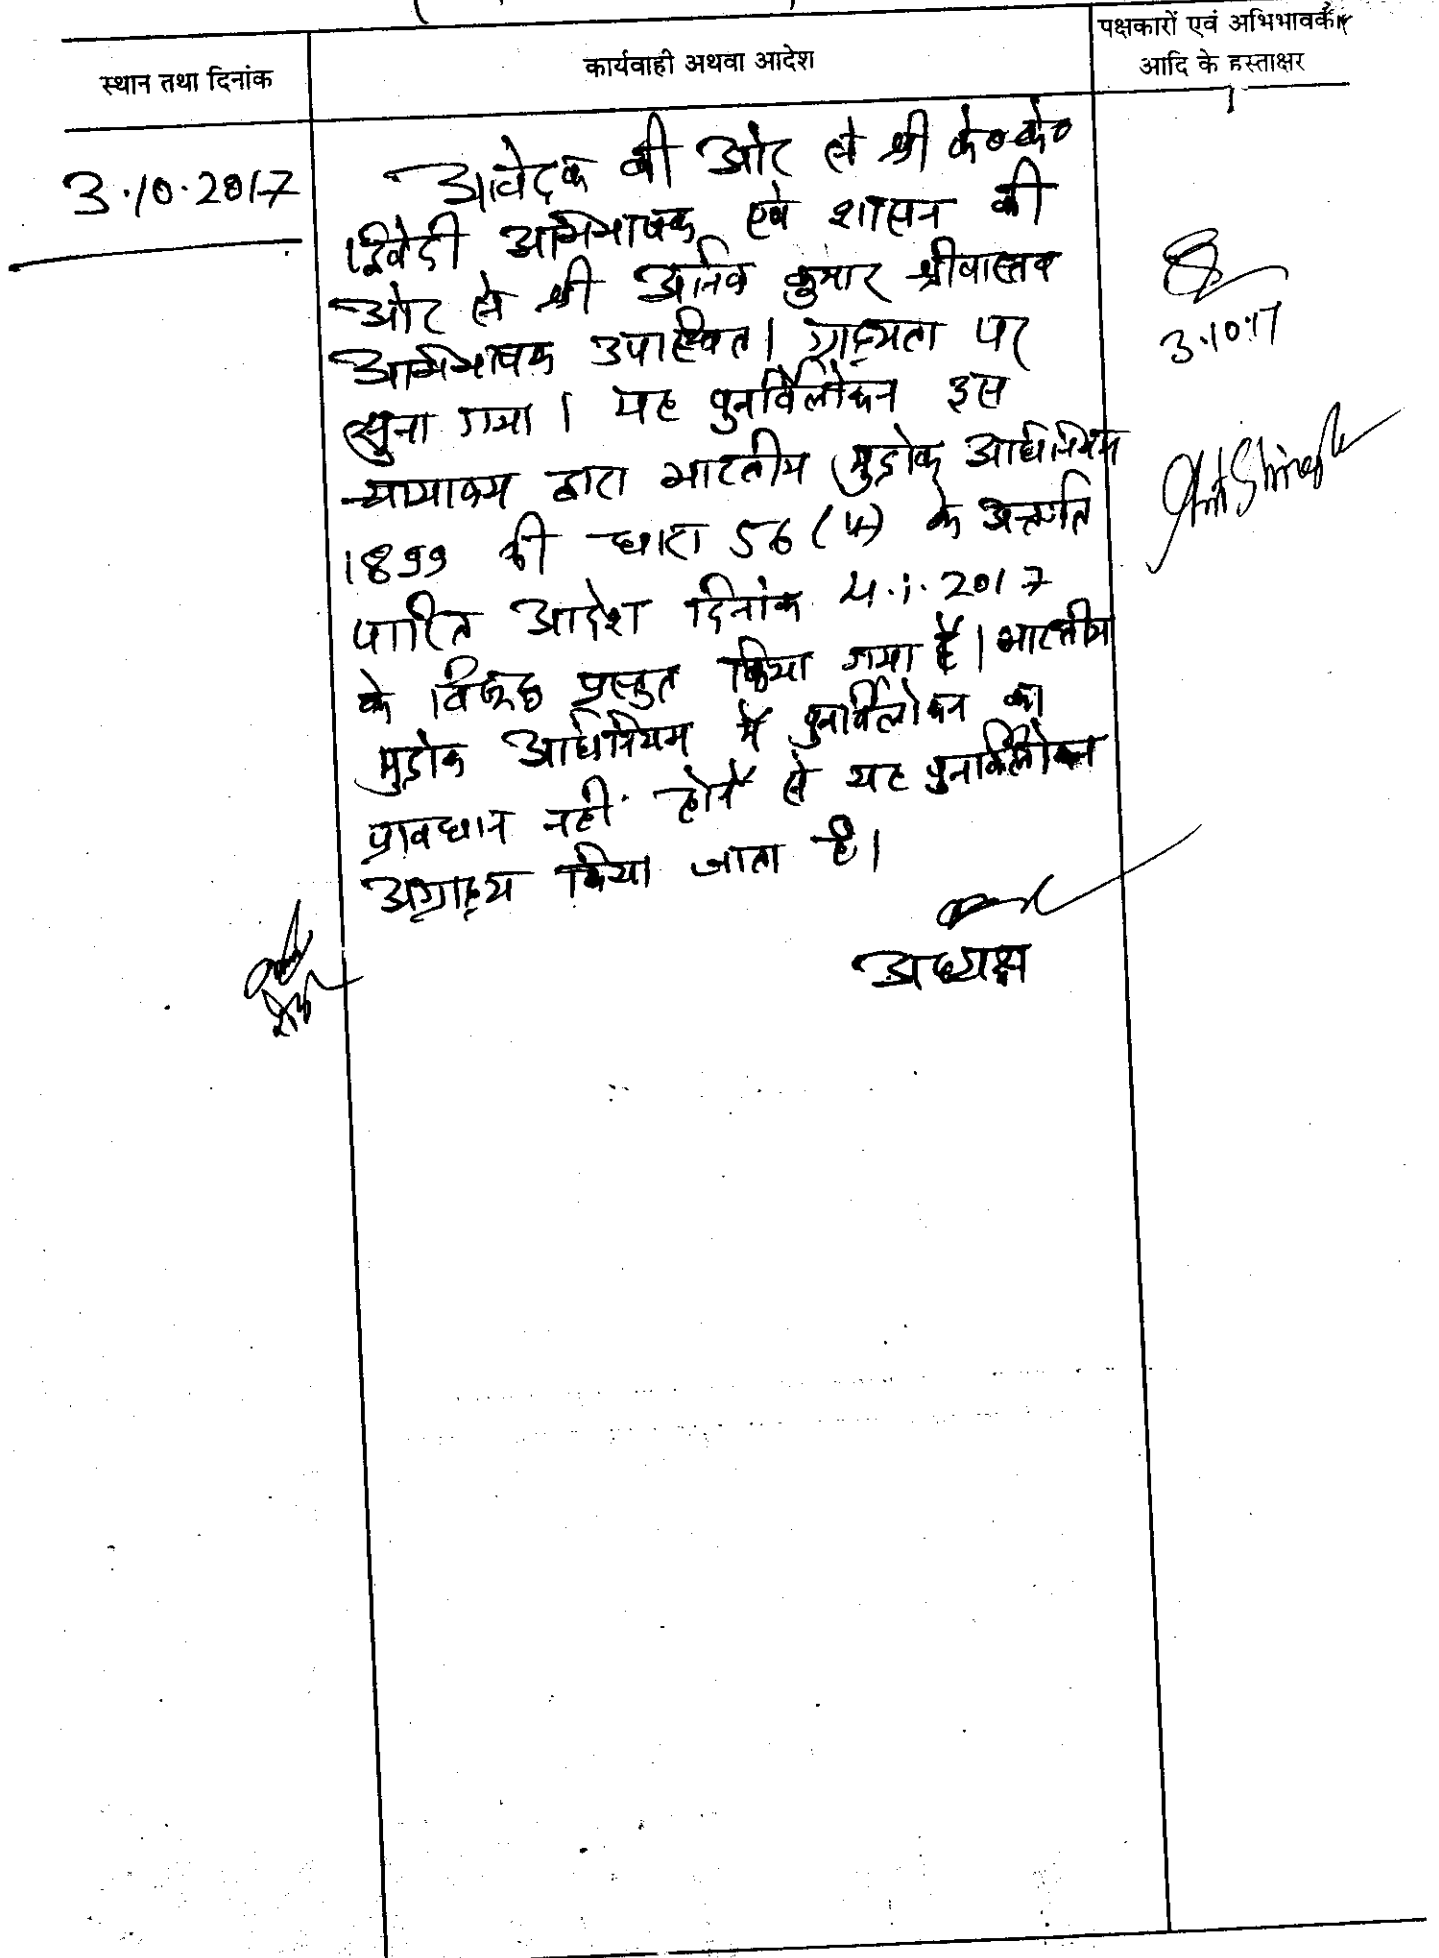 स्थान तथा दिनांक
कार्यवाही अथवा आदेश
पक्षकारों एवं अभिभावकों
आदि के हस्ताक्षर
3.10.2017
आवेदक की ओर से श्री के० के०
द्विवेदी अभिभाषक एवं शासन की
ओर से श्री कुमार श्रीवास्तव
अभिभाषक उपस्थित। ग्राह्यता पर
सुना गया। यह पुनर्विलोकन इस
न्यायालय द्वारा भारतीय मुद्रांक अधिनियम
1899 की धारा 56 (4) के अन्तर्गत
पारित आदेश दिनांक 4.1.2017
के विरूद्ध प्रस्तुत किया गया है। भारतीय
मुद्रांक अधिनियम में पुनर्विलोकन का
प्रावधान नहीं होने से यह पुनर्विलोकन
अग्राह्य किया जाता है।
अध्यक्ष
3.10.17